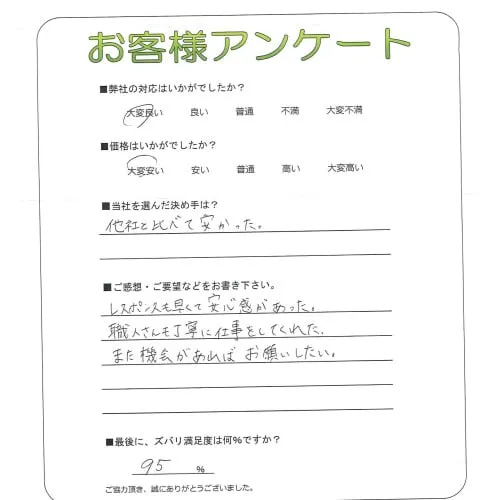 お客様アンケート
■弊社の対応はいかがでしたか？
大変良い 良い 普通 不満 大変不満
■価格はいかがでしたか？
大変安い 安い 普通 高い 大変高い
■当社を選んだ決め手は？
他社と比べて安かった。
■ご感想・ご要望などをお書き下さい。
レスポンスも早くて安心感があった。
職人さんも丁寧に仕事をしてくれた。
また機会があればお願いしたい。
■最後に、ズバリ満足度は何%ですか？
95 %
ご協力頂き、誠にありがとうございました。